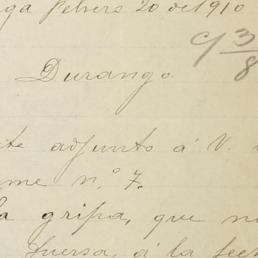 ga febrero 20 de 1910
c/ 3/8
Durango.
te adjunto á V.
me n.º 7.
a gripa, que no
fuerza, á la fec